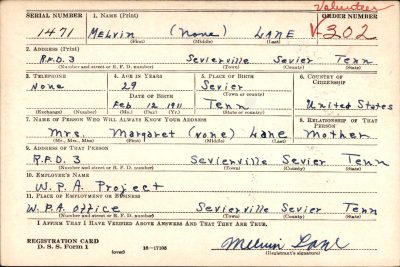 Volunteer
SERIAL NUMBER 1. NAME (Print) ORDER NUMBER
1471 MELVIN (None) LANE V-302
(First) (Middle) (Last)
2. ADDRESS (Print)
R.F.D. 3 Sevierville Sevier Tenn
(Number and street or R. F. D. number) (Town) (County) (State)
3. TELEPHONE 4. AGE IN YEARS 5. PLACE OF BIRTH 6. COUNTRY OF CITIZENSHIP
None 29 Sevier
DATE OF BIRTH (Town or county)
Feb 12 1911 Tenn United States
(Exchange) (Number) (Mo.) (Day) (Yr.) (State or country)
7. NAME OF PERSON WHO WILL ALWAYS KNOW YOUR ADDRESS 8. RELATIONSHIP OF THAT PERSON
Mrs. Margaret (none) Lane Mother
(Mr., Mrs., Miss) (First) (Middle) (Last)
9. ADDRESS OF THAT PERSON
R.F.D. 3 Sevierville Sevier Tenn
(Number and street or R. F. D. number) (Town) (County) (State)
10. EMPLOYER'S NAME
W.P.A. Project
11. PLACE OF EMPLOYMENT OR BUSINESS
W.P.A. Office Sevierville Sevier Tenn
(Number and street or R. F. D. number) (Town) (County) (State)
I AFFIRM THAT I HAVE VERIFIED ABOVE ANSWERS AND THAT THEY ARE TRUE.
REGISTRATION CARD
D. S. S. Form 1 (over) 16-17105 Melvin Lane
(Registrant's signature)